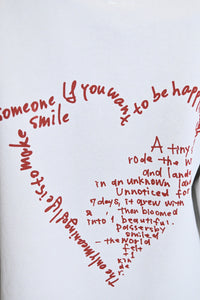 someone if you want to be happ
smile
The only meaning of life is to make
A tiny s
rode the w
and lande
in an unknown lan
Unnoticed for
7 days, it grew with
a , then bloomed
into 1 beautiful.
passersby
smiled
- the world
felt
1
kinde
r.